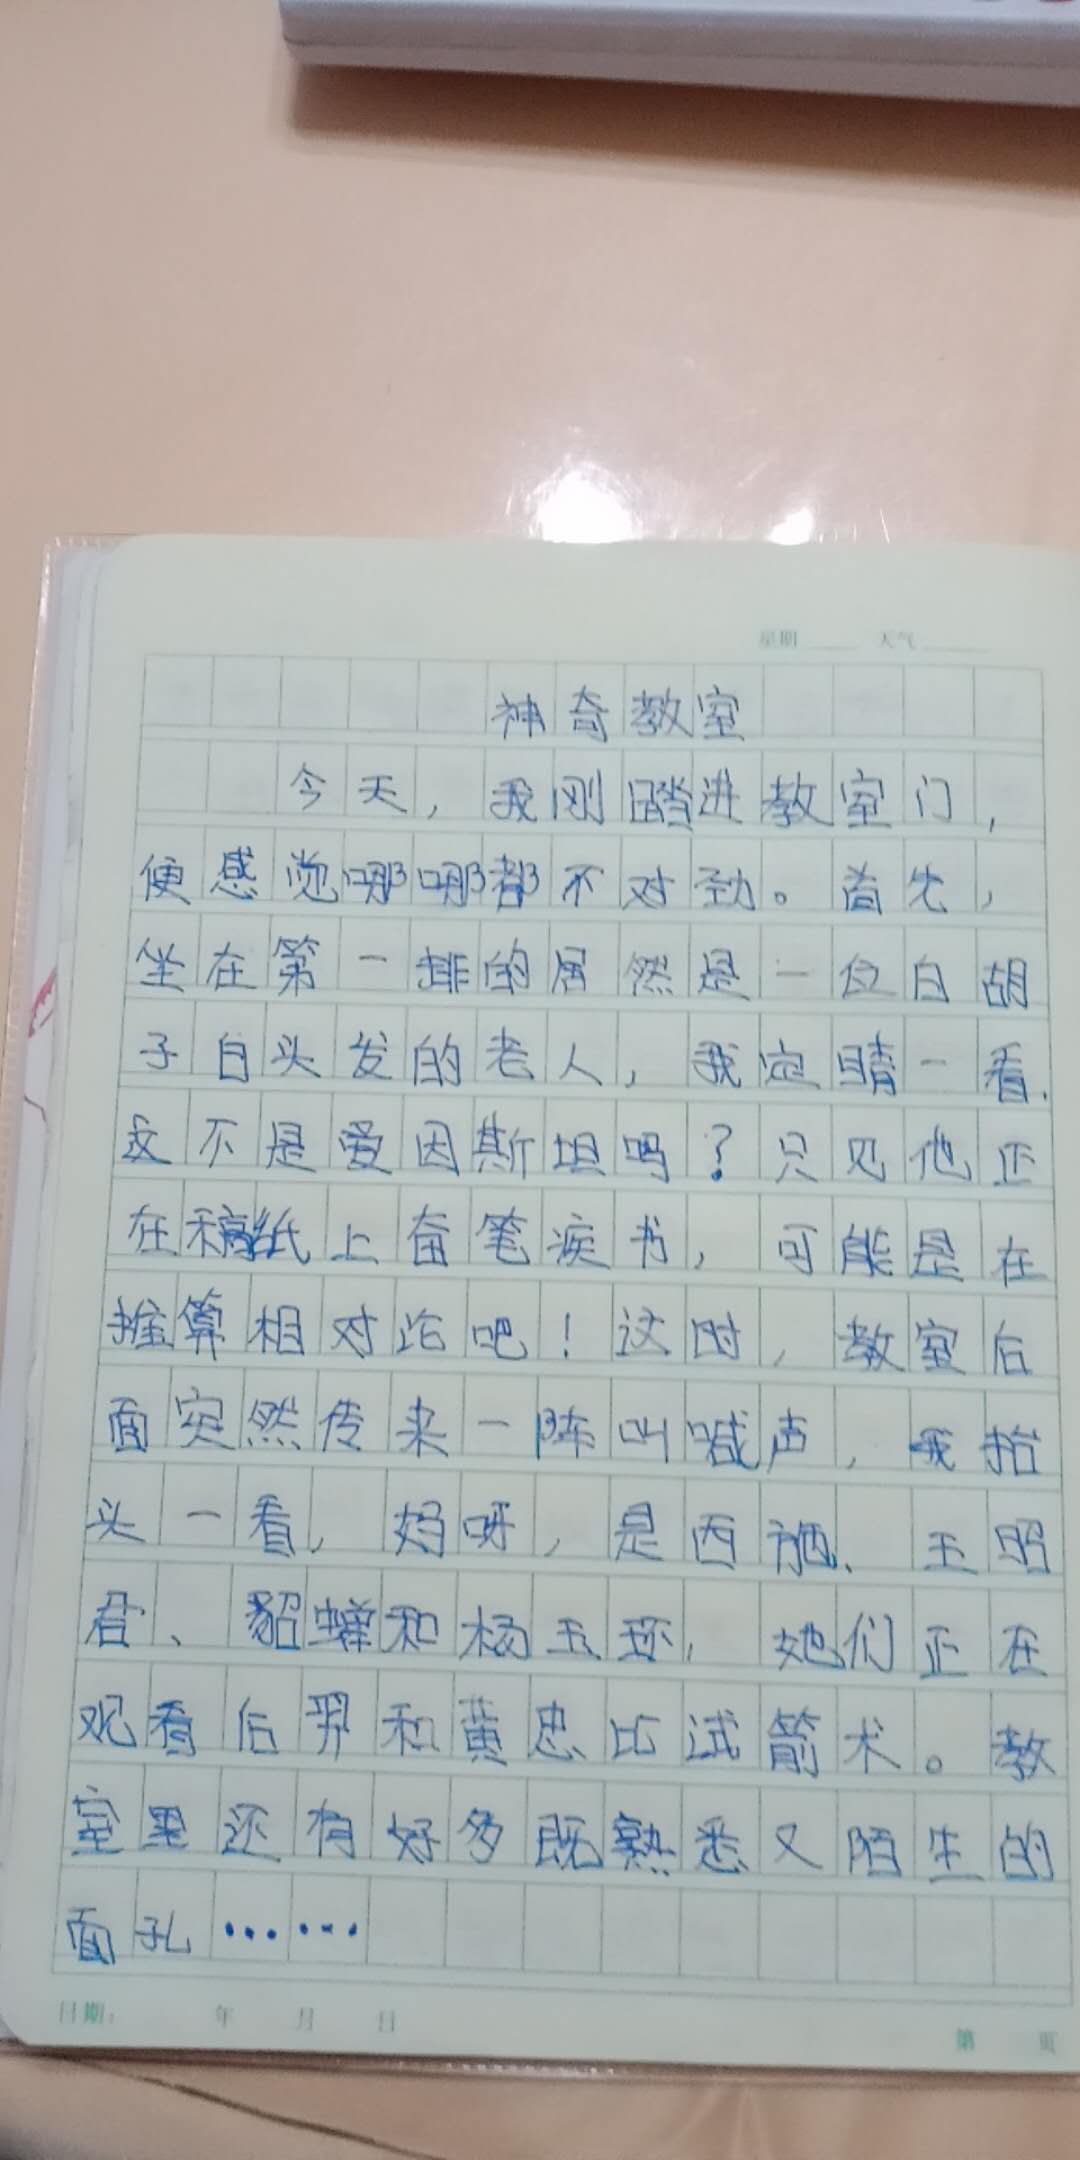 星期 天气
神奇教室
今天，我刚踏进教室门，
便感觉哪哪都不对劲。首先，
坐在第一排的居然是一位白胡
子白头发的老人，我定睛一看，
这不是爱因斯坦吗？只见他正
在稿纸上奋笔疾书，可能是在
推算相对论吧！这时，教室后
面突然传来一阵叫喊声，我抬
头一看，妈呀，是西施、王昭
君、貂蝉和杨玉环，她们正在
观看后羿和黄忠比试箭术。教
室里还有好多既熟悉又陌生的
面孔……
日期： 年 月 日 第 页